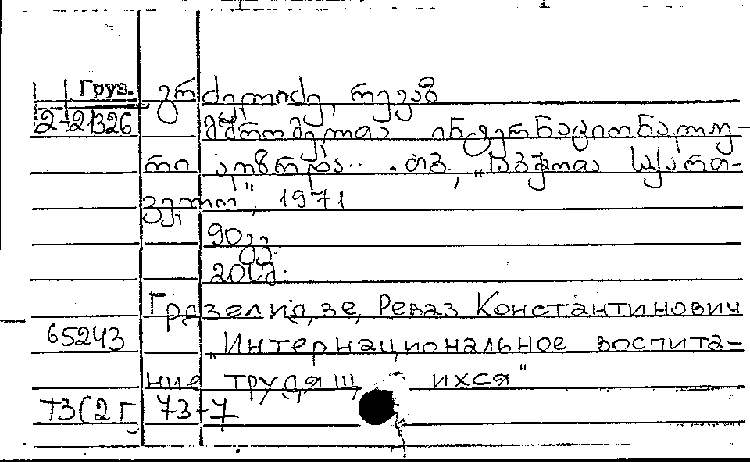 Груз.
გრძელიძე, რევაზ
2-21326
მშრომელთა ინტერნაციონალუ-
რი აღზრდა. თბ., „საბჭოთა საქართ-
ველო", 1971
90 გვ.
20 კ.
Грдзелидзе, Реваз Константинович
65243
„Интернациональное воспита-
ние трудящ ихся"
Т3(2Г 73-7